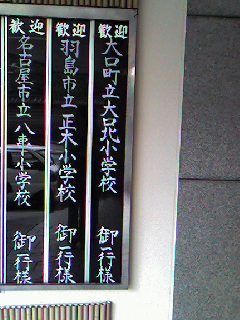 歓迎 大口町立大口北小学校 御一行様
歓迎 羽島市立 正木小学校 御一行様
歓迎 名古屋市立 八事小学校 御一行様